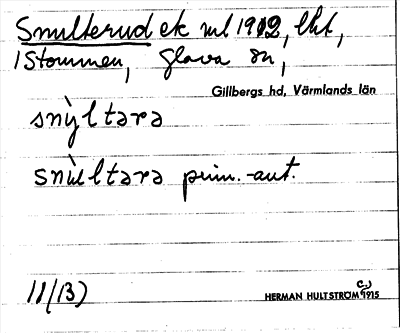 Smulterud ek ml 1912, lht,
i Stommen, Glava sn,
Gillbergs hd, Värmlands län
snỳltara
snùltara prim.-aut.
11/(13)
HERMAN HULTSTRÖM 1915